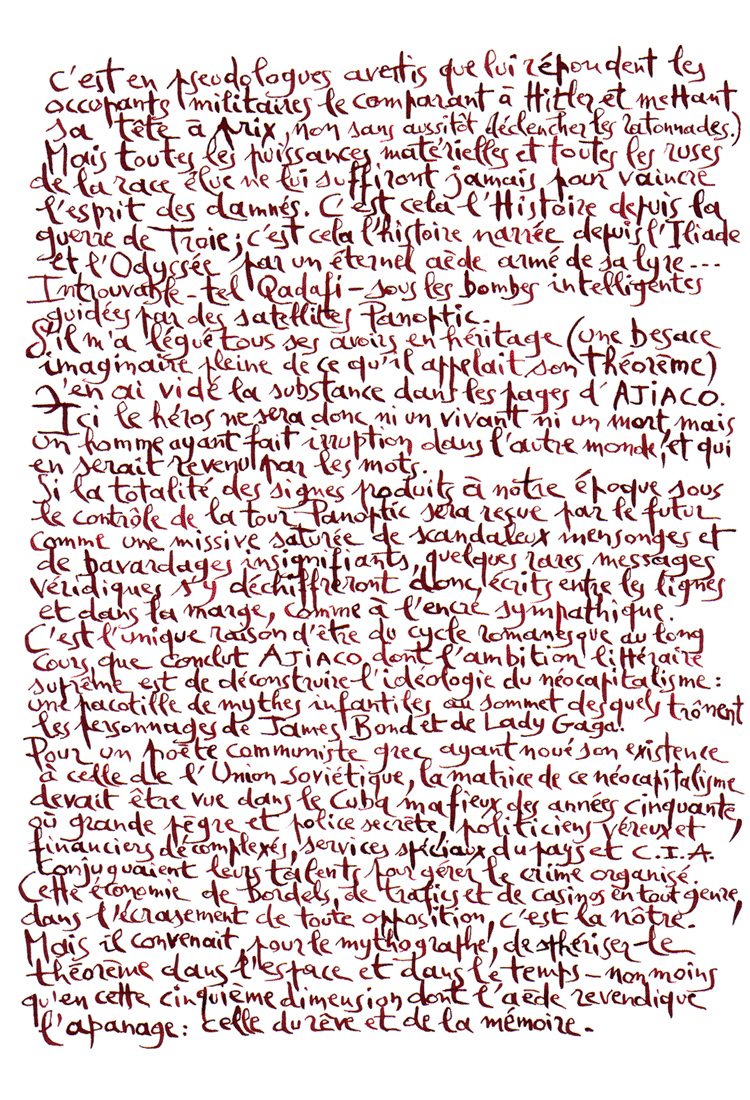 c'est en pseudologues avertis que lui répondent les
occupants militaires le comparant à Hitler et mettant
sa tête à prix, non sans aussitôt déclencher les ratonnades.)
Mais toutes les puissances matérielles et toutes les ruses
de la race élue ne lui suffiront jamais pour vaincre
l'esprit des damnés. C'est cela l'Histoire depuis la
guerre de Troie ; c'est cela l'histoire narrée depuis l'Iliade
et l'Odyssée par un éternel aède armé de sa lyre...
Introuvable - tel Qadafi - sous les bombes intelligentes
guidées par des satellites Panoptic.
S'il m'a légué tous ses avoirs en héritage (une besace
imaginaire pleine de ce qu'il appelait son théorème)
J'en ai vidé la substance dans les pages d'AJIACO.
Ici le héros ne sera donc ni un vivant ni un mort, mais
un homme ayant fait irruption dans l'autre monde, et qui
en serait revenu par les mots.
Si la totalité des signes produits à notre époque sous
le contrôle de la tour Panoptic sera reçue par le futur
comme une missive saturée de scandaleux mensonges et
de bavardages insignifiants, quelques rares messages
véridiques s'y déchiffreront donc, écrits entre les lignes
et dans la marge, comme à l'encre sympathique.
C'est l'unique raison d'être du cycle romanesque au long
cours que conclut AJIACO, dont l'ambition littéraire
suprême est de déconstruire l'idéologie du néocapitalisme :
une pacotille de mythes infantiles au sommet desquels trônent
les personnages de James Bond et de Lady Gaga.
Pour un poète communiste grec ayant noué son existence
à celle de l'Union soviétique, la matrice de ce néocapitalisme
devait être vue dans le Cuba mafieux des années cinquante,
où grande pègre et police secrète, politiciens véreux et
financiers décomplexés, services spéciaux du pays et C.I.A.
conjuguaient leurs talents pour gérer le crime organisé.
Cette économie de bordels, de trafics et de casinos en tout genre,
dans l'écrasement de toute opposition, c'est la nôtre.
Mais il convenait, pour le mythographe, de sphériser le
théorème dans l'espace et dans le temps - non moins
qu'en cette cinquième dimension dont l'aède revendique
l'apanage : celle du rêve et de la mémoire.